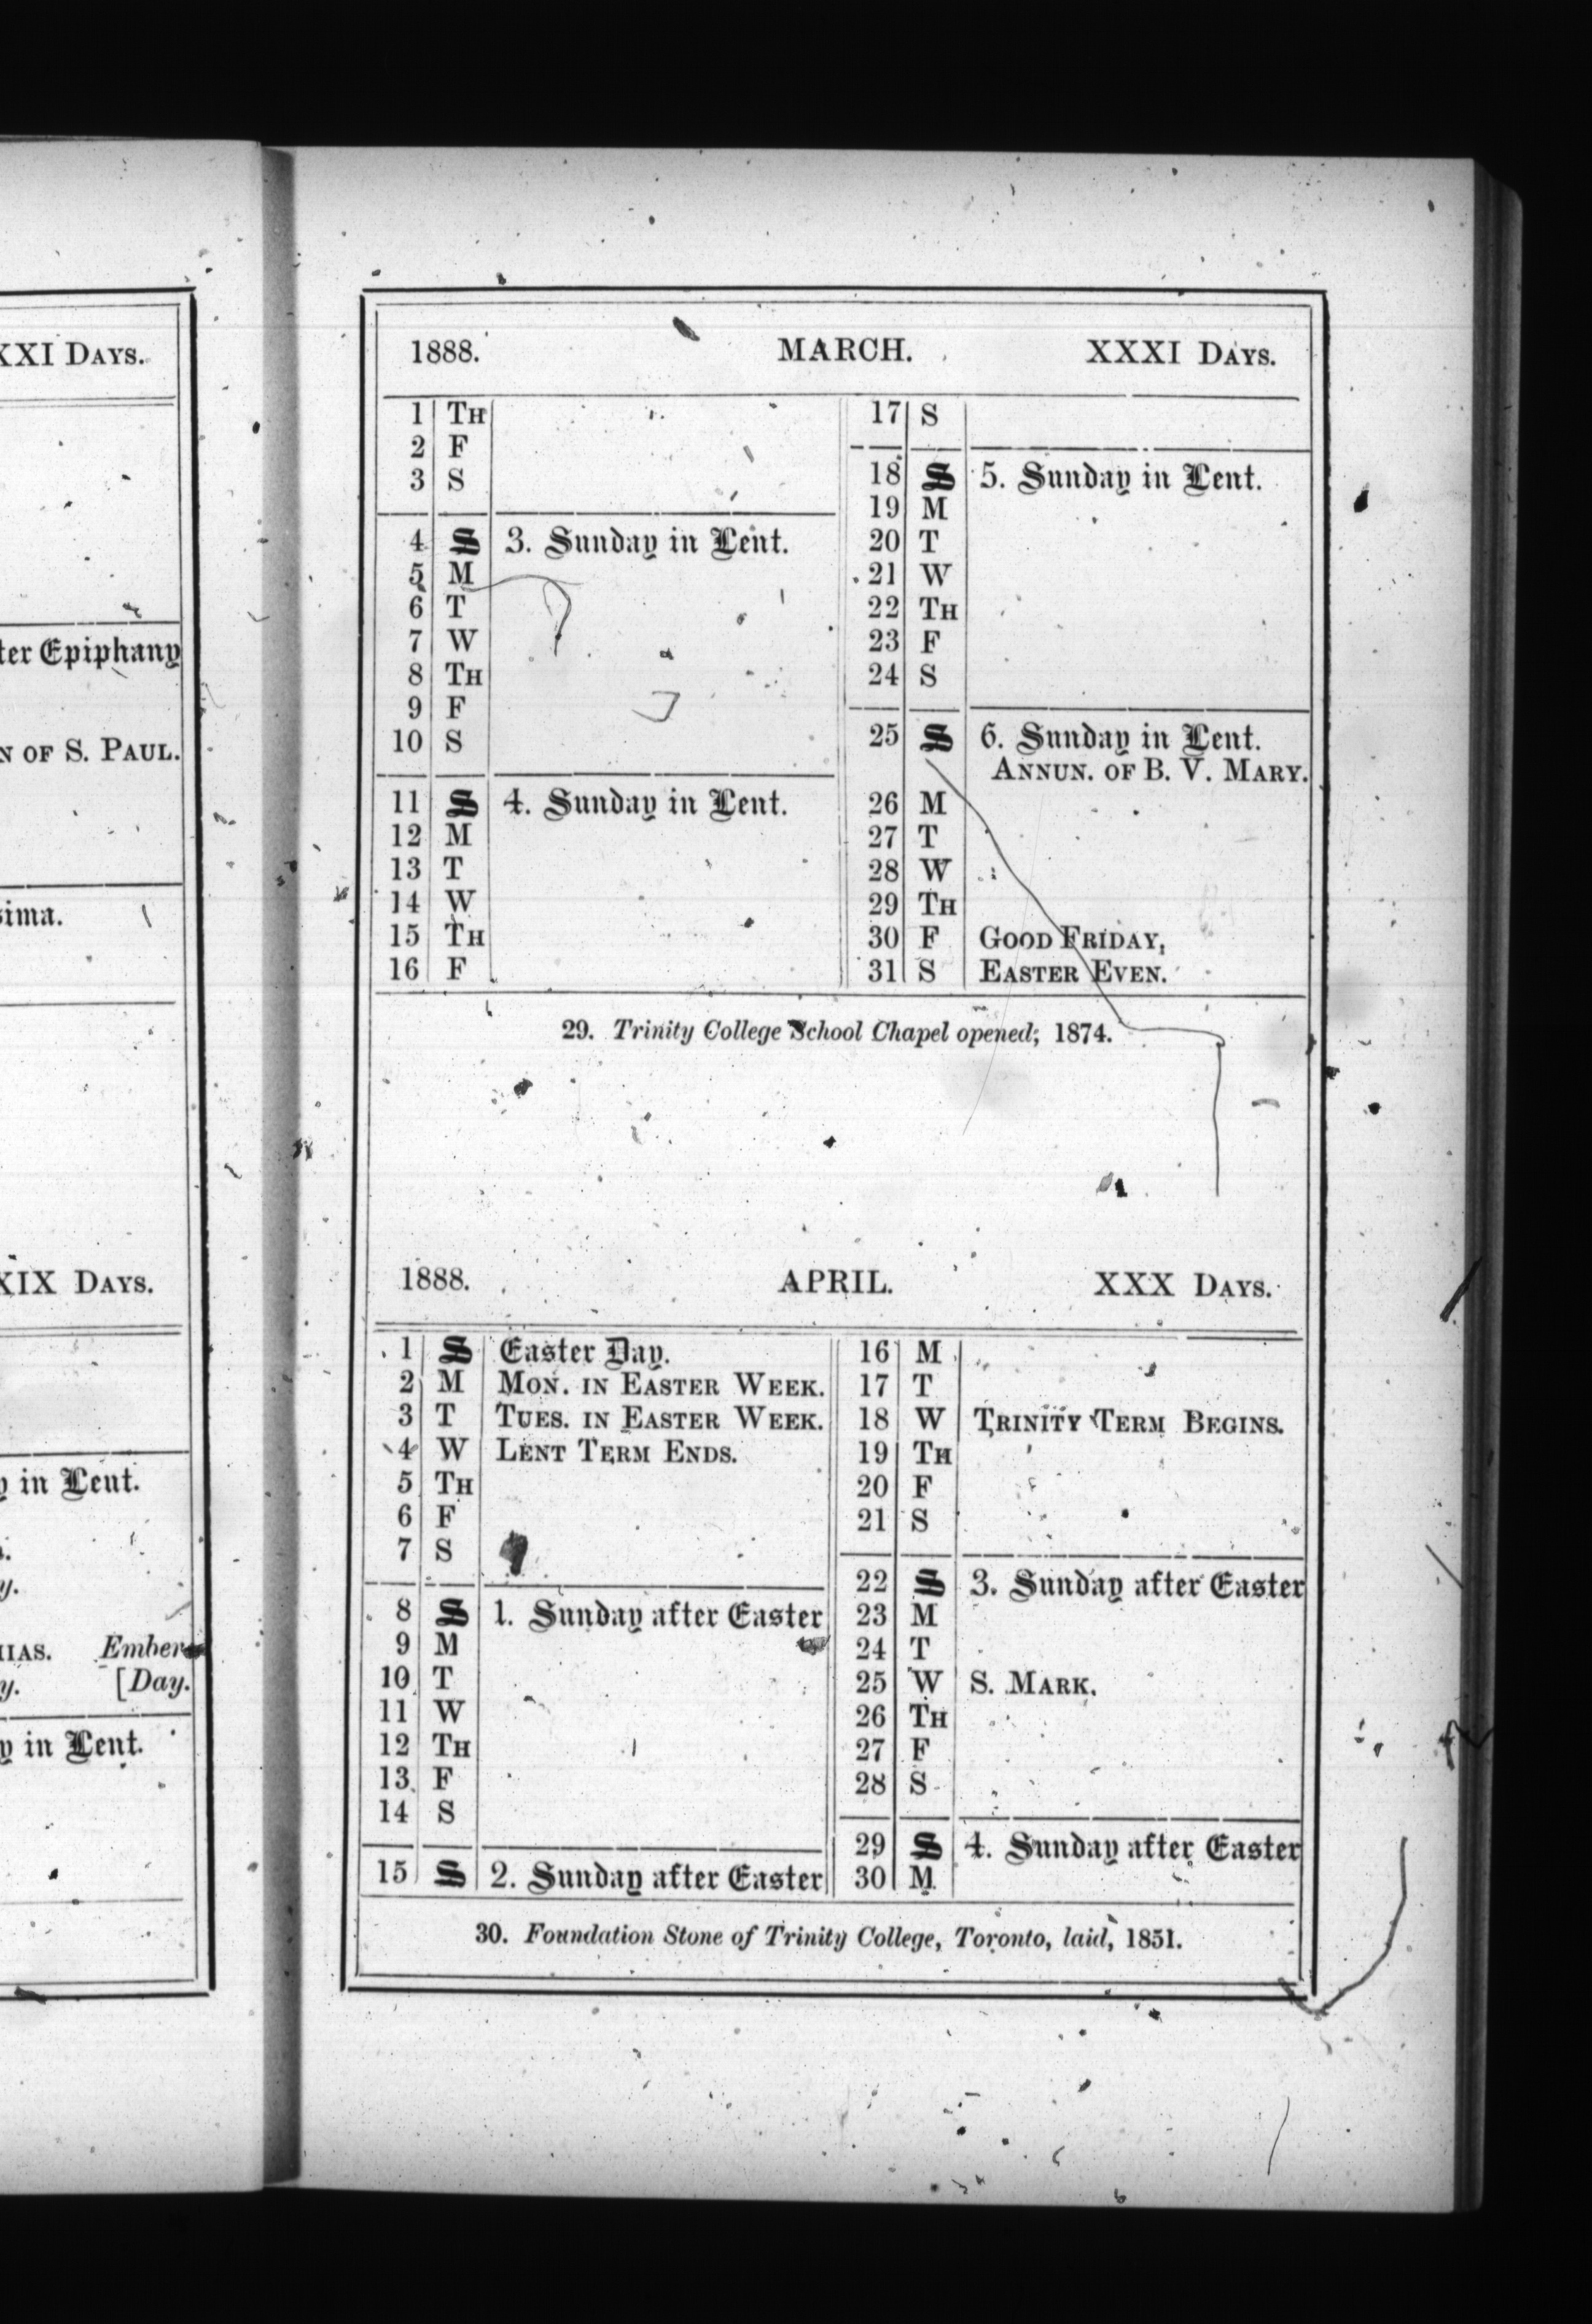 XXI DAYS.
ter Epiphany
N OF S. PAUL.
sima.
XIX DAYS.
y in Lent.
y.
HIAS. Ember
y. [Day.
y in Lent.
1888. MARCH. XXXI DAYS.
1 TH
2 F
3 S
4 S 3. Sunday in Lent.
5 M
6 T
7 W
8 TH
9 F
10 S
11 S 4. Sunday in Lent.
12 M
13 T
14 W
15 TH
16 F
17 S
18 S 5. Sunday in Lent.
19 M
20 T
21 W
22 TH
23 F
24 S
25 S 6. Sunday in Lent.
ANNUN. OF B. V. MARY.
26 M
27 T
28 W
29 TH
30 F GOOD FRIDAY,
31 S EASTER EVEN.
29. Trinity College School Chapel opened; 1874.
1888. APRIL. XXX DAYS.
1 S Easter Day.
2 M MON. IN EASTER WEEK.
3 T TUES. IN EASTER WEEK.
4 W LENT TERM ENDS.
5 TH
6 F
7 S
8 S 1. Sunday after Easter
9 M
10 T
11 W
12 TH
13 F
14 S
15 S 2. Sunday after Easter
16 M
17 T
18 W TRINITY TERM BEGINS.
19 TH
20 F
21 S
22 S 3. Sunday after Easter
23 M
24 T
25 W S. MARK.
26 TH
27 F
28 S
29 S 4. Sunday after Easter
30 M
30. Foundation Stone of Trinity College, Toronto, laid, 1851.